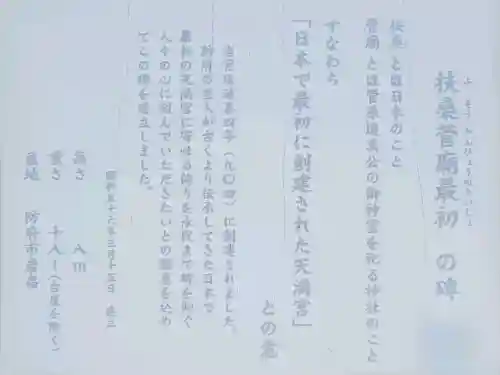 扶桑菅廟最初 の碑
扶桑 とは日本のこと
菅廟 とは菅原道真公の御神霊を祀る神社のこと
すなわち
「日本で最初に創建された天満宮」
との意
当宮は延喜四年（九〇四）に創建されました。
防府の里人が古くより伝承してきた日本で
最初の天満宮に寄せる誇りを永段まで
人々の心に刻んでいただきたいとの願意を込め
てこの碑を建立しました。
昭和五十六年三月十五日 建立
高さ 八m
重さ 十八t（台座を除く）
産地 防府市